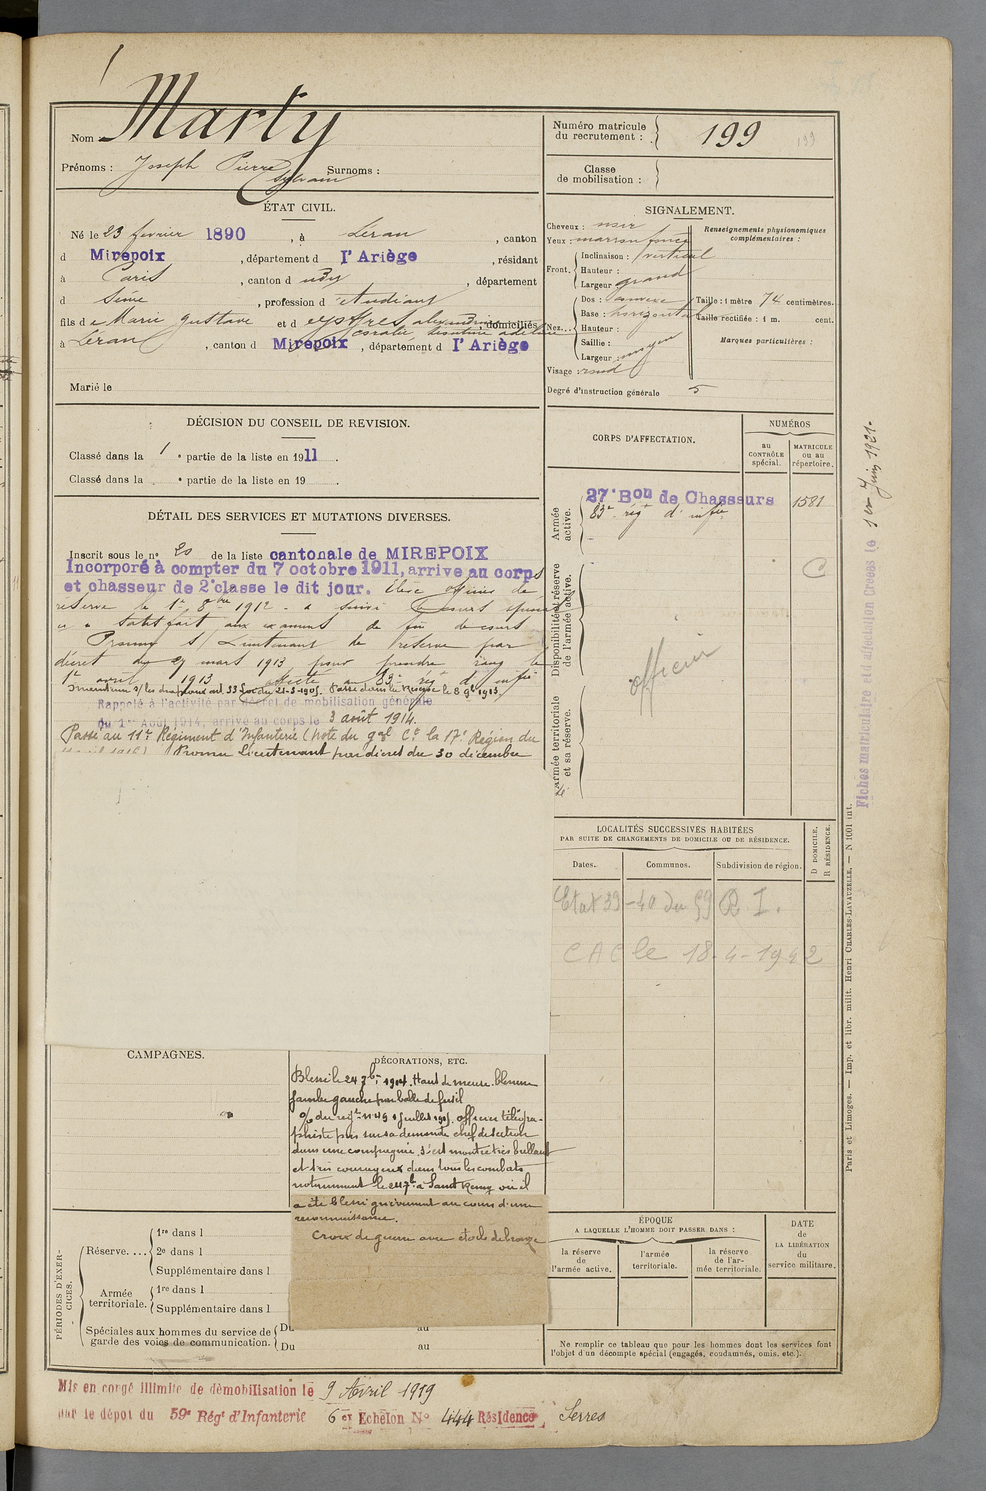 Nom : Marty
Prénoms : Joseph Pierre Surnoms :
Sylvain
ÉTAT CIVIL.
Né le 23 février 1890, à Léran, canton
d Mirepoix, département d l'Ariège, résidant
à Paris, canton d udy, département
d Seine, profession d' étudiant
fils d e Marie Gustave et d domiciliés
à Léran, canton d Mirepoix, département d l'Ariège
Marié le
DÉCISION DU CONSEIL DE REVISION.
Classé dans la 1e partie de la liste en 1911.
Classé dans la e partie de la liste en 19 .
DÉTAIL DES SERVICES ET MUTATIONS DIVERSES.
Inscrit sous le no 20 de la liste cantonale de MIREPOIX
Incorporé à compter du 7 octobre 1911, arrive au corps
et chasseur de 2e classe le dit jour. Elève officier de
réserve le 1er 8bre 1912 - a suivi cours
et a satisfait aux examens de fin de cours
Promu s/ Lieutenant de réserve par
décret du 27 mars 1913 pour prendre rang le
1er avril 1913 affecté au 83e régt d'infie
le 8 9bre 1913
Rappelé à l'activité par décret de mobilisation générale
du 1er Août 1914, arrive au corps le 3 août 1914.
Passé au 11e Régiment d'Infanterie (Note du Gal Ct la 17e Région du
Promu Lieutenant par décret du 30 décembre
CAMPAGNES.
DÉCORATIONS, ETC.
Blessé le 24 7bre 1914. Haut de meuse. blessure
jambe gauche par balle de fusil
o/ du régt no 49 1 juillet 1915. officier télégra-
phiste pris sur sa demande chef de section
dans une compagnie s'est montré très brillant
et très courageux dans tous les combats
notamment le 24 7bre à Saint Remy où il
a été blessé grièvement au cours d'une
reconnaissance.
Croix de guerre avec étoile de bronze
PÉRIODES D'EXERCICES.
Réserve.... 1re dans l
2e dans l
Supplémentaire dans l
Armée territoriale. 1re dans l
Supplémentaire dans l
Spéciales aux hommes du service de garde des voies de communication. Du au
Du au
Numéro matricule du recrutement : 199
199
Classe de mobilisation :
SIGNALEMENT.
Cheveux : noir
Yeux : marron foncé
Front. Inclinaison : vertical
Hauteur :
Largeur : grand
Nez... Dos :
Base : horizontal
Hauteur :
Saillie :
Largeur : moyen
Visage : rond
Renseignements physionomiques complémentaires :
Taille : 1 mètre 74 centimètres.
Taille rectifiée : 1 m. cent.
Marques particulières :
Degré d'instruction générale 5
CORPS D'AFFECTATION.
NUMÉROS
au CONTRÔLE spécial.
MATRICULE ou au répertoire.
Armée active.
27e Bon de Chasseurs 1581
83e régt d'infie
Disponibilité et réserve de l'armée active.
C
officier
Armée territoriale et sa réserve.
LOCALITÉS SUCCESSIVES HABITÉES
PAR SUITE DE CHANGEMENTS DE DOMICILE OU DE RÉSIDENCE.
Dates. Communes. Subdivision de région. D DOMICILE. R RÉSIDENCE.
Etat 39-40 du 59 R I.
CAC le 18-4-1942
ÉPOQUE
A LAQUELLE L'HOMME DOIT PASSER DANS :
la réserve de l'armée active.
l'armée territoriale.
la réserve de l'armée territoriale.
DATE de LA LIBÉRATION du service militaire.
Ne remplir ce tableau que pour les hommes dont les services font
l'objet d'un décompte spécial (engagés, condamnés, omis, etc.).
Fiches matriculaire et d'affectation Créées le 1er Juin 1921.
Paris et Limoges. — Imp. et libr. milit. Henri CHARLES-LAVAUZELLE. — N 1001 int.
Mis en congé illimité de démobilisation le 9 Avril 1919
par le dépot du 59e Régt d'Infanterie 6 et Echelon No 444 Résidence Serres